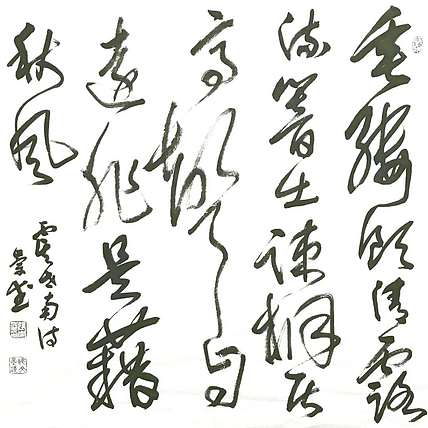 垂緌飲清露
流響出疎桐居
高聲自
遠非是藉
秋風
虞世南诗